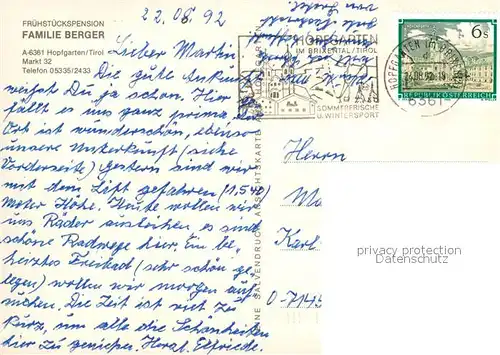 FRÜHSTÜCKSPENSION
FAMILIE BERGER
A-6361 Hopfgarten/Tirol
Markt 32
Telefon 05335/2433
22.08.92
Lieber Martin,
Die gute Ankunft
weißt Du ja schon. Hier
gefällt es uns ganz prima, der
Ort ist wunderschön, ebenso
unsere Unterkunft (siehe
Vorderseite). Gestern sind wir
mit dem Lift gefahren (1.540
Meter Höhe. Heute wollen wir
uns Räder ausleihen, es sind
schöne Radwege hier. Ein be-
heiztes Freibad (sehr schön ge-
legen) wollen wir morgen auf-
suchen. Die Zeit ist viel zu
kurz, um alle die Schönheiten
hier zu genießen. Herzl. Elfriede
HOPFGARTEN
IM BRIXENTAL/TIROL
SOMMERFRISCHE
U. WINTERSPORT
HOPFGARTEN IM BRIXENTAL
6361
6s
REPUBLIK ÖSTERREICH
EINE SALVENDRUCK ANSICHTSKARTE
Herrn
Karl-
0-7145
privacy protection
Datenschutz